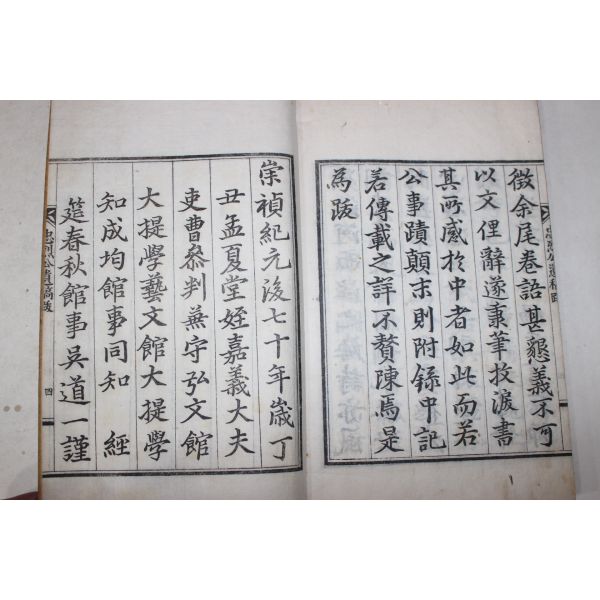 徵余尾卷語甚懇義不可
以文俚辭遂秉筆抆淚書
其所感於中者如此而若
公事蹟顛末則附錄中記
若傳載之詳不贅陳焉是
爲跋
崇禎紀元後七十年歲丁
丑孟夏堂姪嘉義大夫
吏曹叅判兼守弘文館
大提學藝文館大提學
知成均館事同知 經
筵春秋館事吳道一謹
忠烈公遺稿跋
四